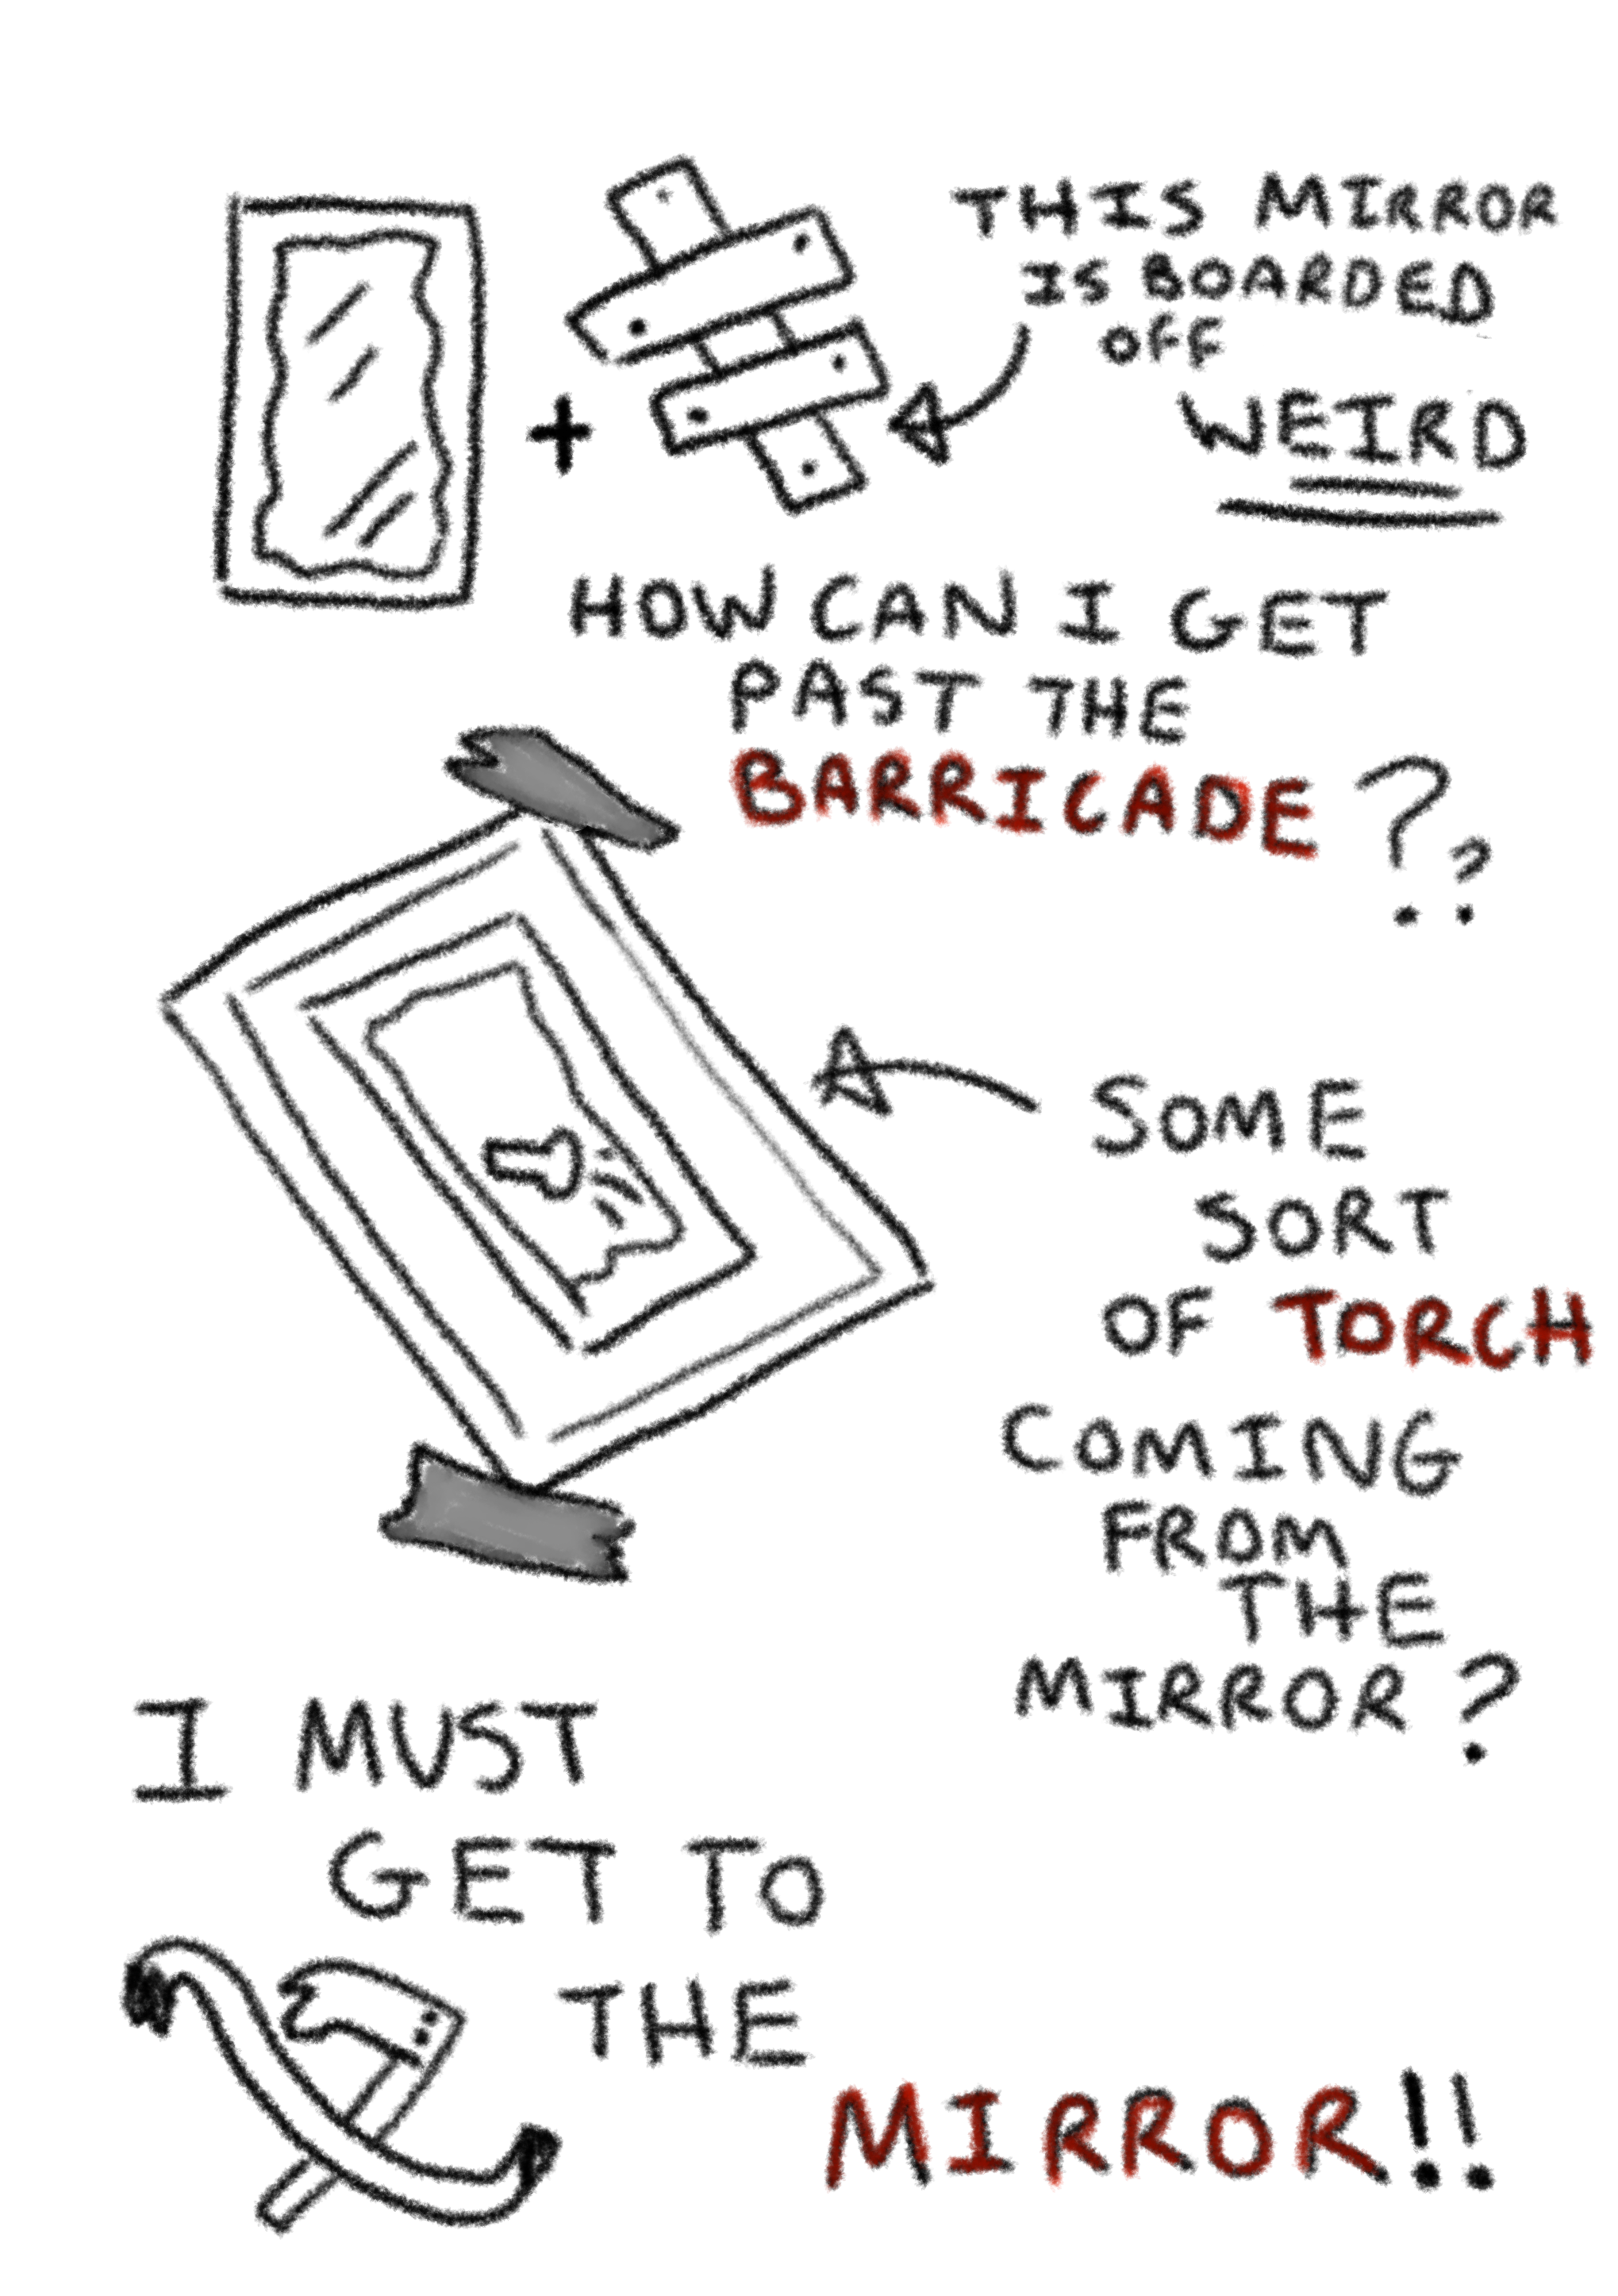 THIS MIRROR
IS BOARDED
OFF
WEIRD
+
HOW CAN I GET
PAST THE
BARRICADE??
SOME
SORT
OF TORCH
COMING
FROM
THE
MIRROR?
I MUST
GET TO
THE
MIRROR!!